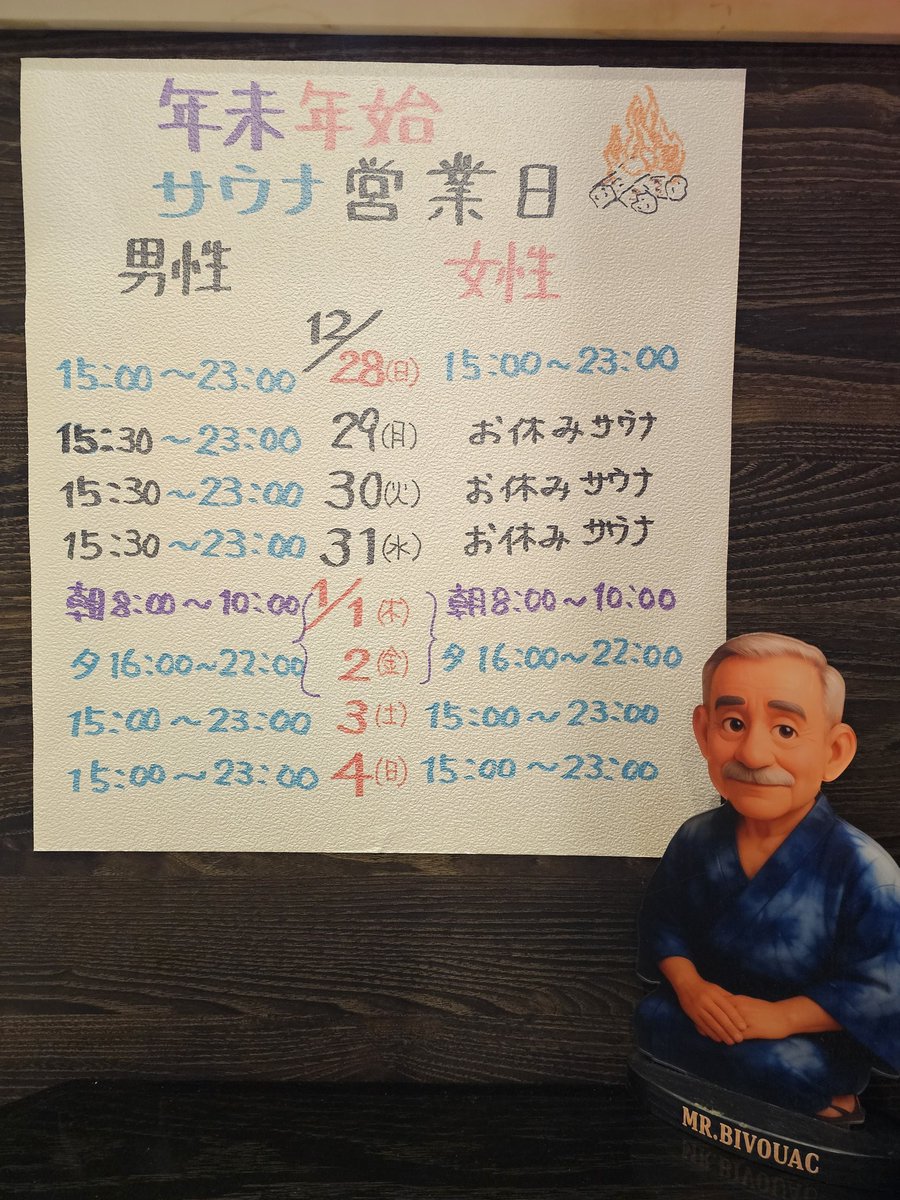 年末年始
サウナ営業日
男性 女性
15:00～23:00 12/28(日) 15:00～23:00
15:30～23:00 29(月) お休みサウナ
15:30～23:00 30(火) お休みサウナ
15:30～23:00 31(水) お休みサウナ
朝8:00～10:00 1/1(木) 朝8:00～10:00
夕16:00～22:00 2(金) 夕16:00～22:00
15:00～23:00 3(土) 15:00～23:00
15:00～23:00 4(日) 15:00～23:00
MR.BIVOUAC